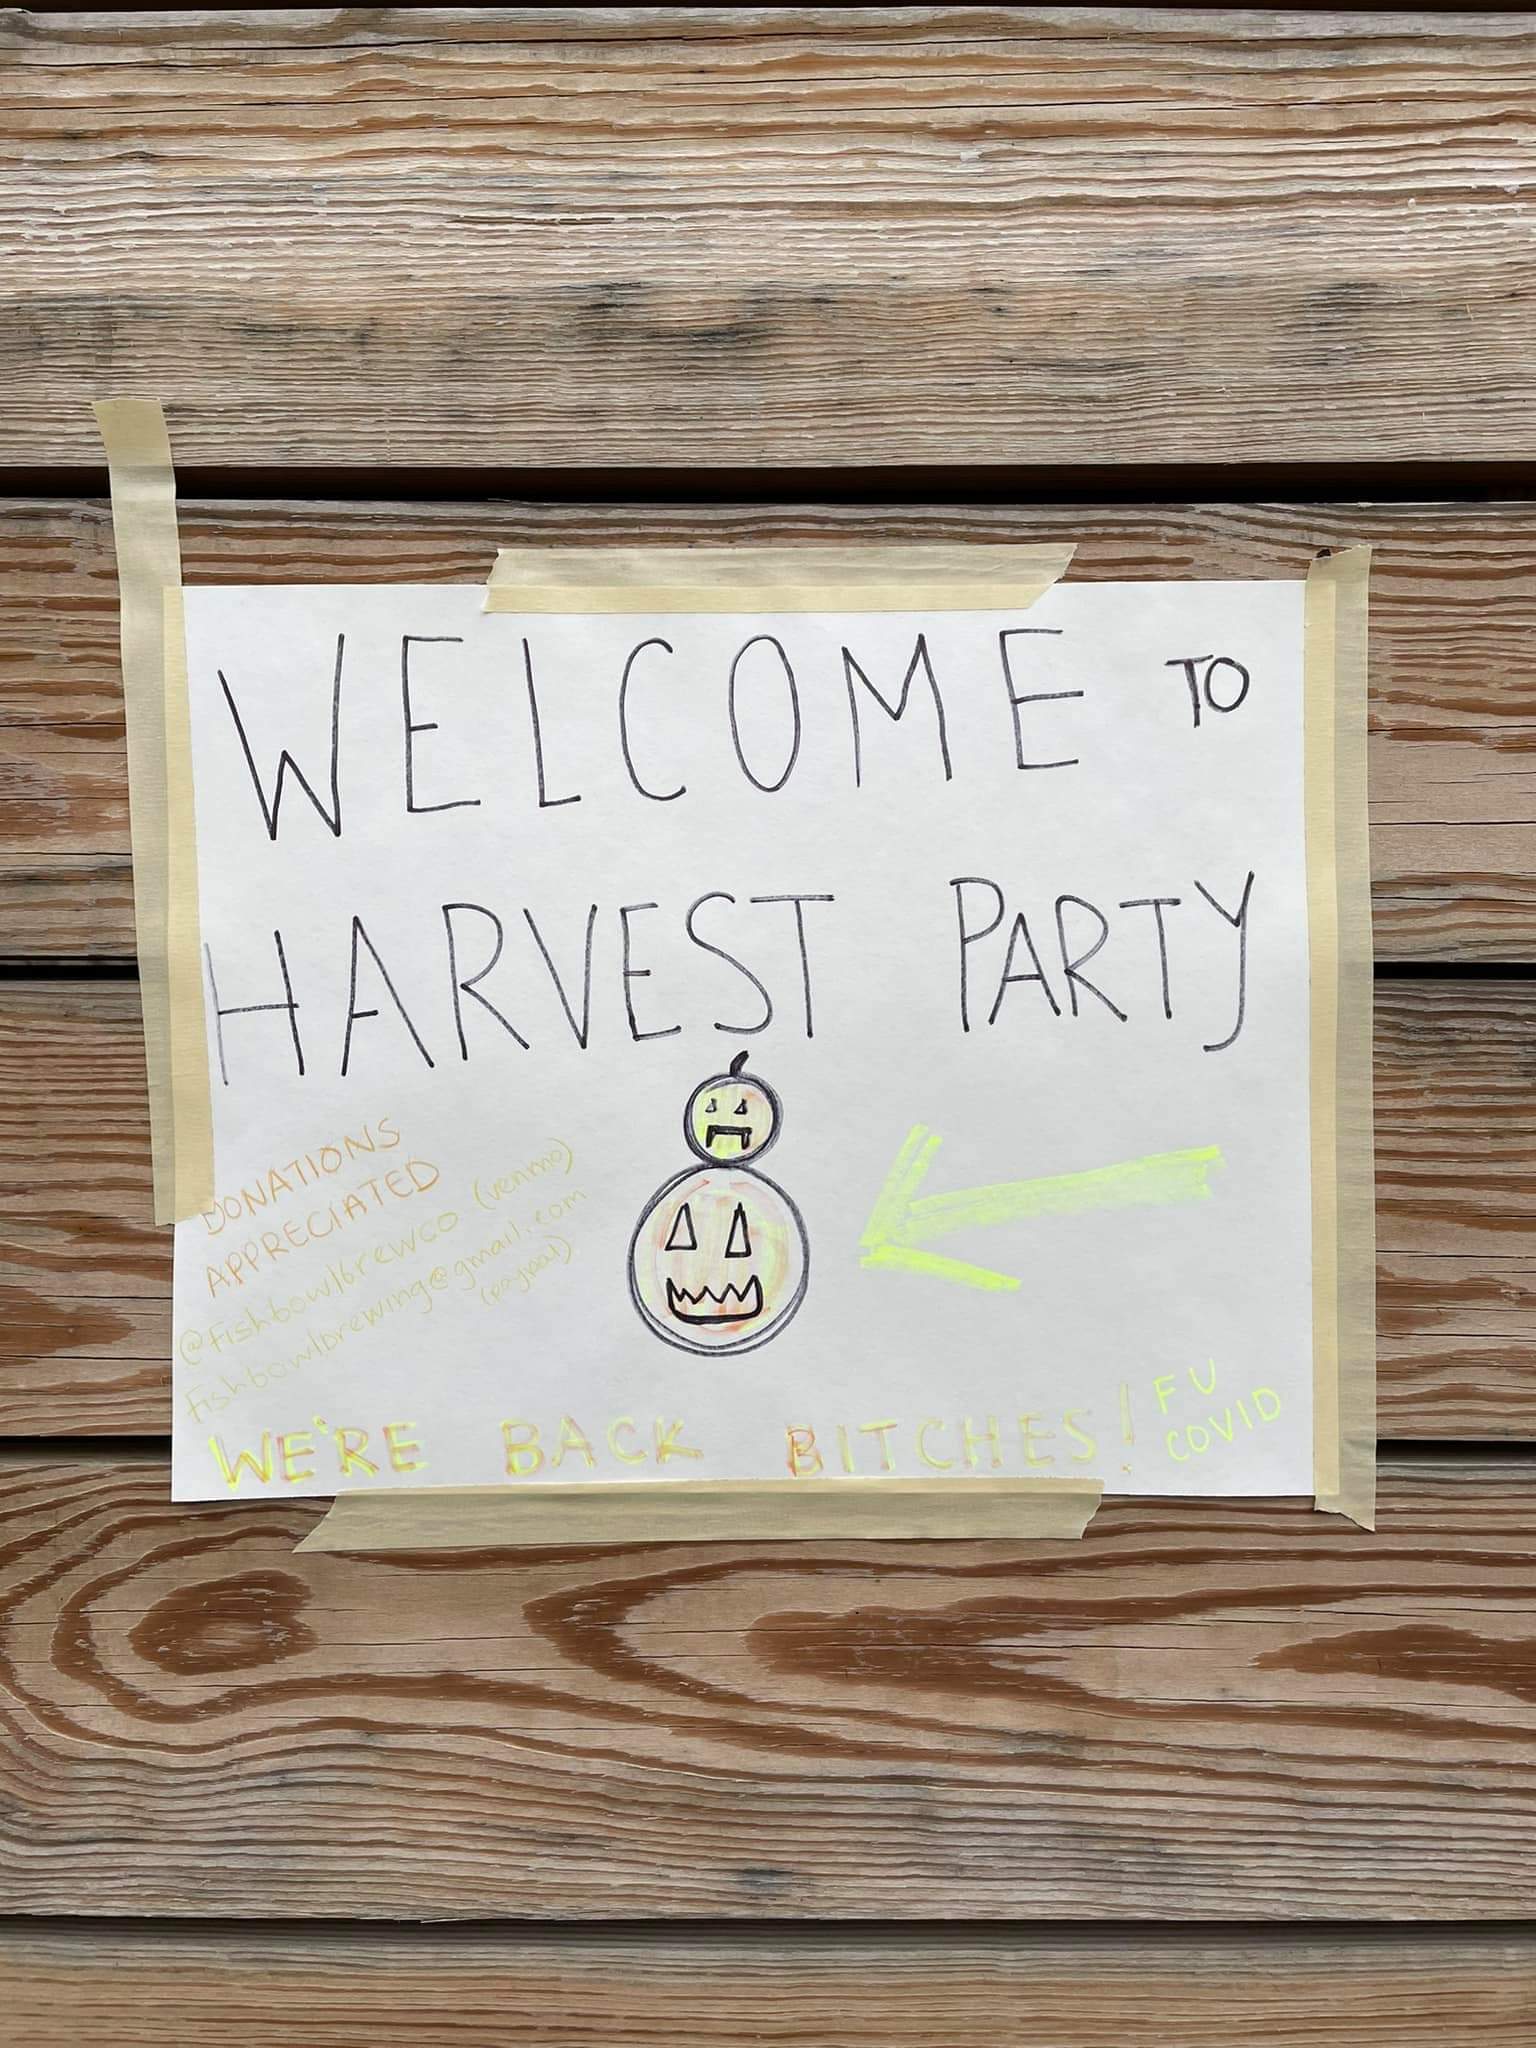 WELCOME TO
HARVEST PARTY
DONATIONS
APPRECIATED
@fishbowlbrewco (venmo)
fishbowlbrewing@gmail.com
(paypal)
WE'RE BACK BITCHES!
FU
COVID